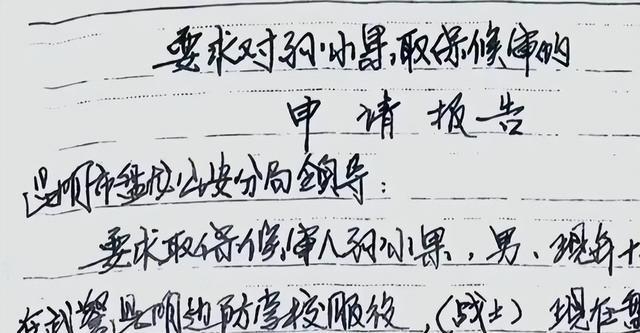 要求对孙小果取保候审的
申请报告
昆明市盘龙公安分局领导:
要求取保候审人孙小果,男、现年十
在武警昆明边防学校服役,(战士)现在